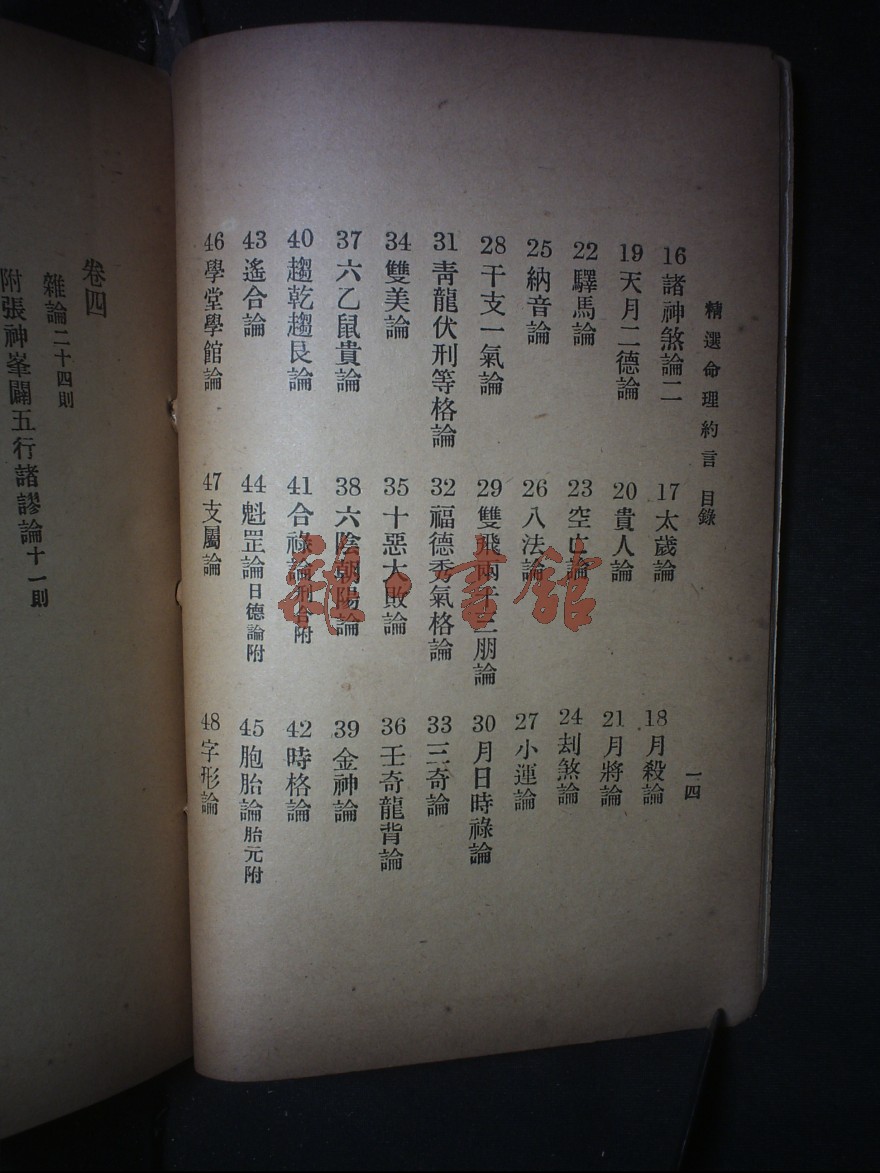 精選命理約言 目錄 一四
16 諸神煞論二
17 太歲論
18 月殺論
19 天月二德論
20 貴人論
21 月將論
22 驛馬論
23 空亡論
24 刦煞論
25 納音論
26 八法論
27 小運論
28 干支一氣論
29 雙飛兩干三朋論
30 月日時祿論
31 青龍伏刑等格論
32 福德秀氣格論
33 三奇論
34 雙美論
35 十惡大敗論
36 壬奇龍背論
37 六乙鼠貴論
38 六陰朝陽論
39 金神論
40 趨乾趨艮論
41 合祿論刑合附
42 時格論
43 遙合論
44 魁罡論日德論附
45 胞胎論胎元附
46 學堂學館論
47 支屬論
48 字形論
卷四
雜論二十四則
附張神峯闢五行諸謬論十一則
書館